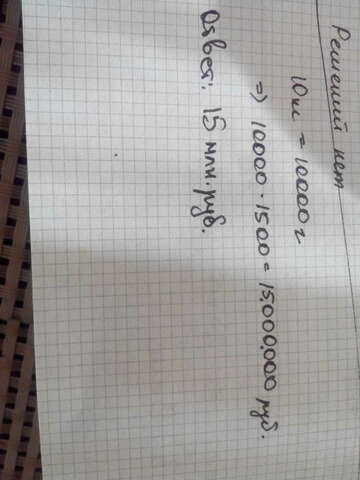 Решений нет
10кг = 10000г
=> 10000·1500=15.000.000 руб.
Ответ: 15 млн.руб.